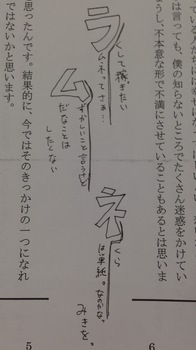 ている人たちに
は言っても、僕の知らないところでたくさん迷惑をかけてい
ようし、不本意な形で不満にさせていることもあるとは思いま
ラ
くして稼ぎたい
ムネってさぁ…
ム
ずかしいこと言うけど
だなことは
したくない
ネ
くら
は単純。なのかな。
みきを。
思ったんです。結果的に、今ではそのきっかけの一つになれ
ではないかと思います。
5
6